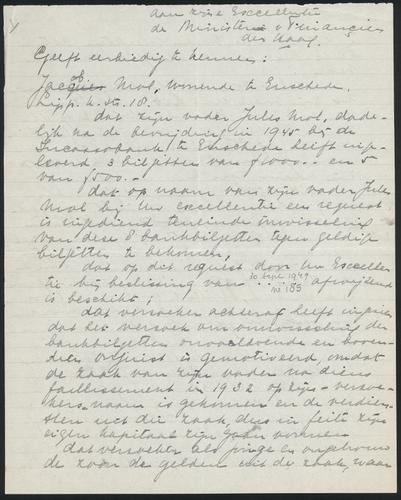 aan zijne Excellentie
de Minister v Financien
den Haag.
Geeft eerbiedig te kennen:
Jacob Mol, wonende te Enschede
Lipp. k. str. 18.
dat zijn vader Jules Mol, dade-
lijk na de bevrijding in 1945 bij de
Incassobank te Enschede heeft inge-
leverd 3 biljetten van f1000.- en 5
van f500.-
dat op naam van zijn vader Jules
Mol bij Uw excellentie een request
is ingediend teneinde inwisseling
van deze 8 bankbiljetten tegen geldige
biljetten te bekomen,
dat op dit request door Uw Excellen
tie bij beslissing van 30 Sept 1949 no 185 afwijzend
is beschikt;
dat verzoeker achteraf heeft ingezien
dat het verzoek om omwisseling der
bankbiljetten onvoldoende en boven-
dien onjuist is gemotiveerd, omdat
de zaak van zijn vader na diens
faillissement in 1932 op zijn - verzoe-
kers naam is gekomen en de verdien-
sten uit die zaak, dus in feite zijn
eigen kapitaal zijn gaan vormen
dat verzoeker als jonge en ongehuwd
de zoon de gelden uit de zaak, waar